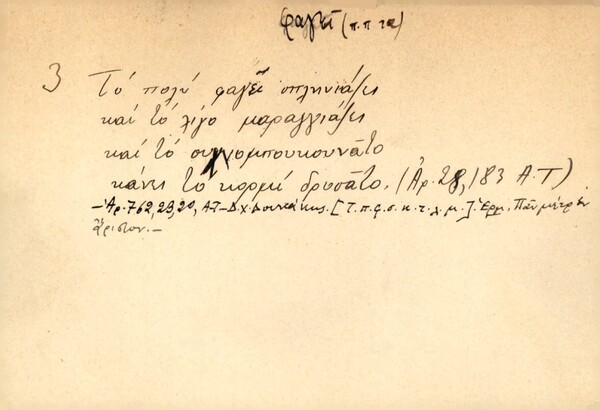 φαγεῖ (π.π τα)
3 Τό πολύ φαγεῖ σπληνιάζει
καί τό λίγο μαραγγιάζει
καί τό συχνομπουκουνᾶτο
κάνει τό κορμί δροσᾶτο. (Ἀρ. 28, 183 Α.Τ)
– Ἀρ. 762, 23, 20, Α.Τ – Δ.Χ. Δουκάκης. [Τ.π.φ.σ.κ.τ.λ.μ.]. Ἑρμ. Πᾶν μέτρον
ἄριστον. –